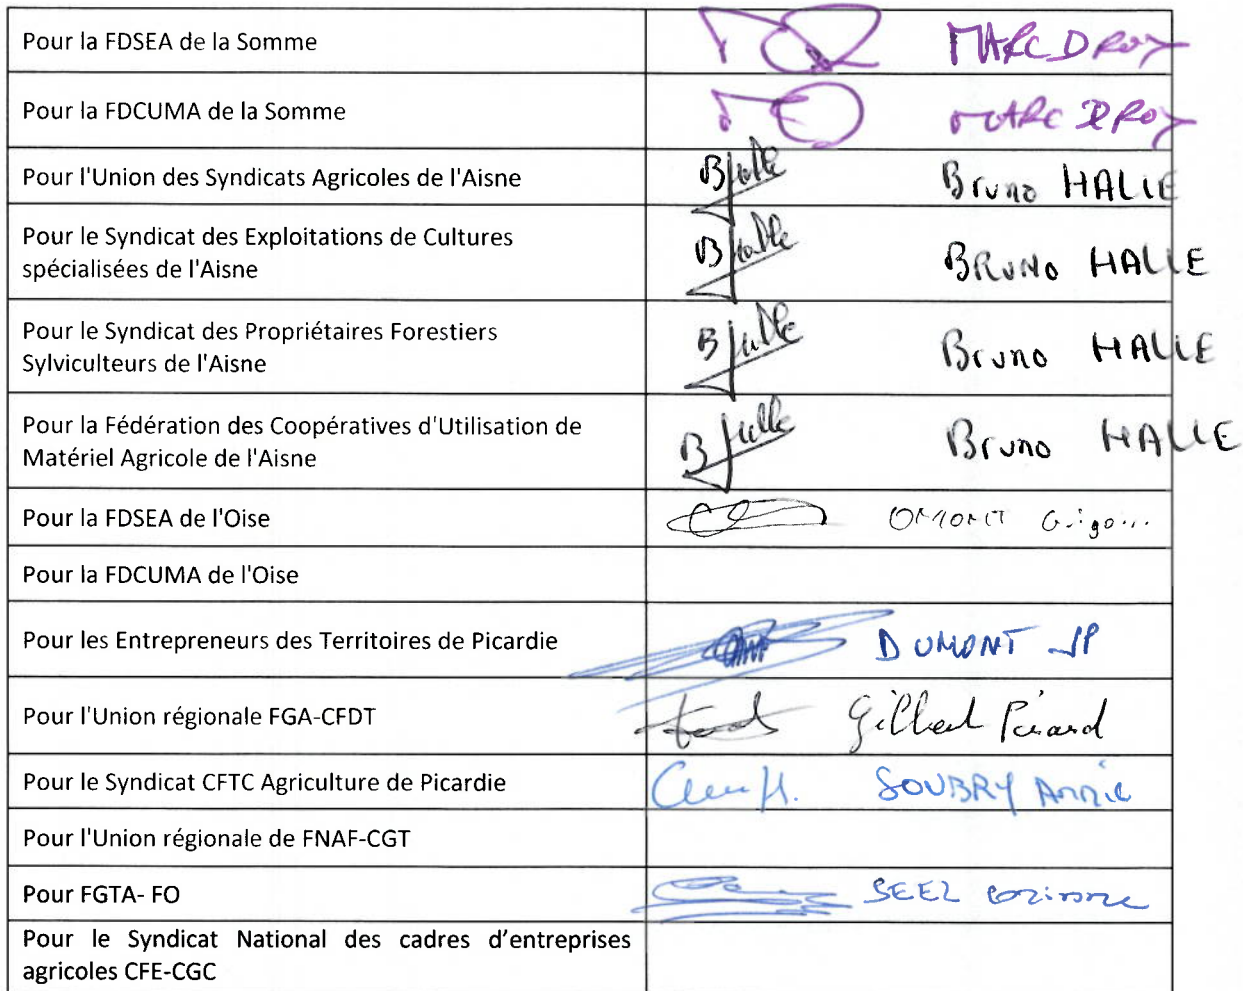 Pour la FDSEA de la Somme MARC DROY
Pour la FDCUMA de la Somme MARC DROY
Pour l'Union des Syndicats Agricoles de l'Aisne BHalle Bruno HALLE
Pour le Syndicat des Exploitations de Cultures
spécialisées de l'Aisne BHalle BRUNO HALLE
Pour le Syndicat des Propriétaires Forestiers
Sylviculteurs de l'Aisne BHalle Bruno HALLE
Pour la Fédération des Coopératives d'Utilisation de
Matériel Agricole de l'Aisne BHalle Bruno HALLE
Pour la FDSEA de l'Oise OMONT
Pour la FDCUMA de l'Oise
Pour les Entrepreneurs des Territoires de Picardie DUMONT JP
Pour l'Union régionale FGA-CFDT Gilbert
Pour le Syndicat CFTC Agriculture de Picardie SOUBRY Annie
Pour l'Union régionale de FNAF-CGT
Pour FGTA- FO
Pour le Syndicat National des cadres d'entreprises
agricoles CFE-CGC